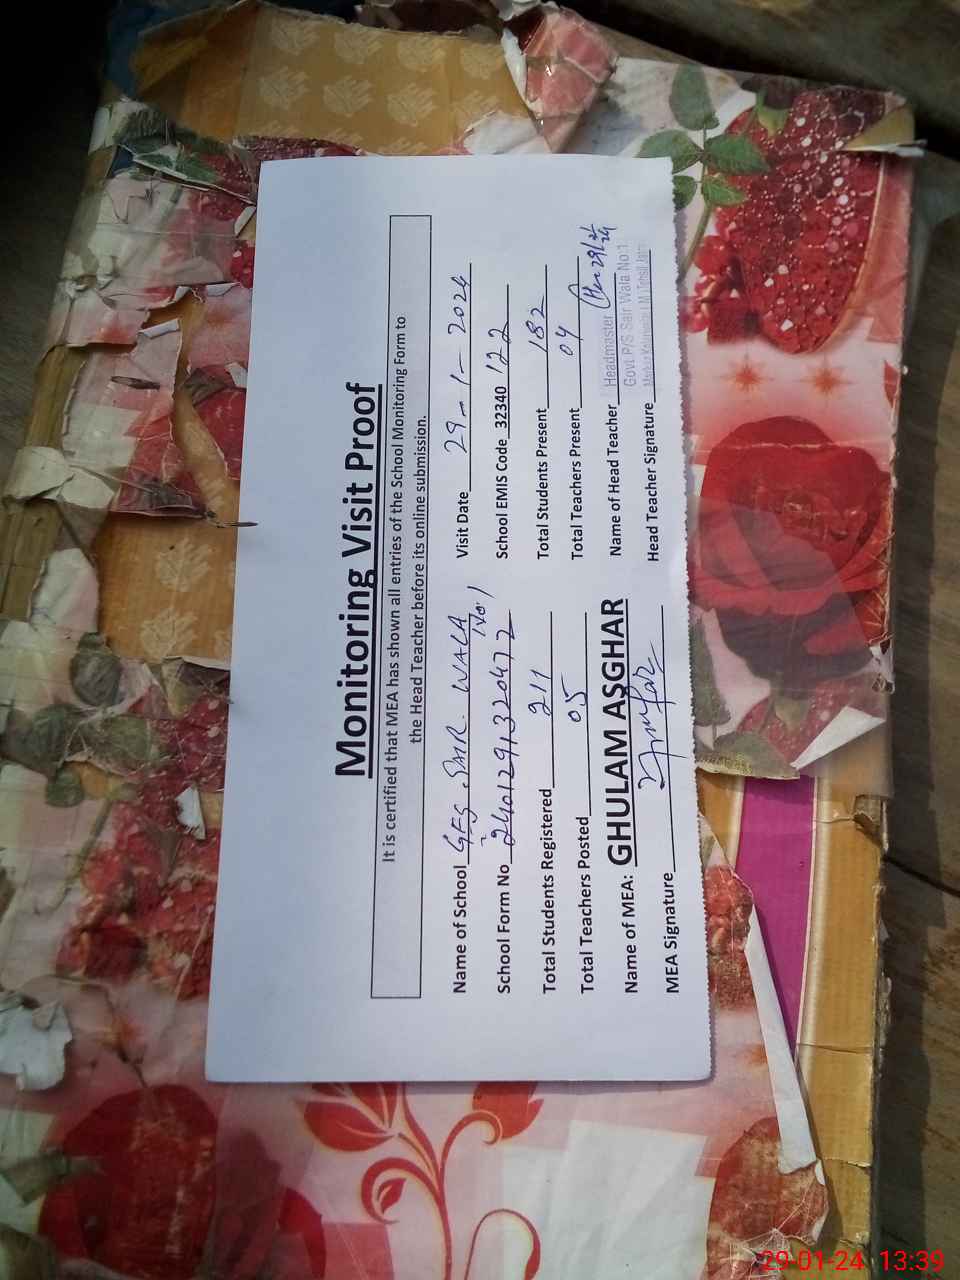 Monitoring Visit Proof
It is certified that MEA has shown all entries of the School Monitoring Form to
the Head Teacher before its online submission.
Name of School GES. SAIR. WALA No 1 Visit Date 29-1-2024
School Form No 2401291320472 School EMIS Code 32340 122
Total Students Registered 211 Total Students Present 182
Total Teachers Posted 05 Total Teachers Present 04
Name of MEA: GHULAM ASGHAR Name of Head Teacher Headmaster
Govt. P/S Sair Wala No:1
MEA Signature Head Teacher Signature
29-01-24 13:39